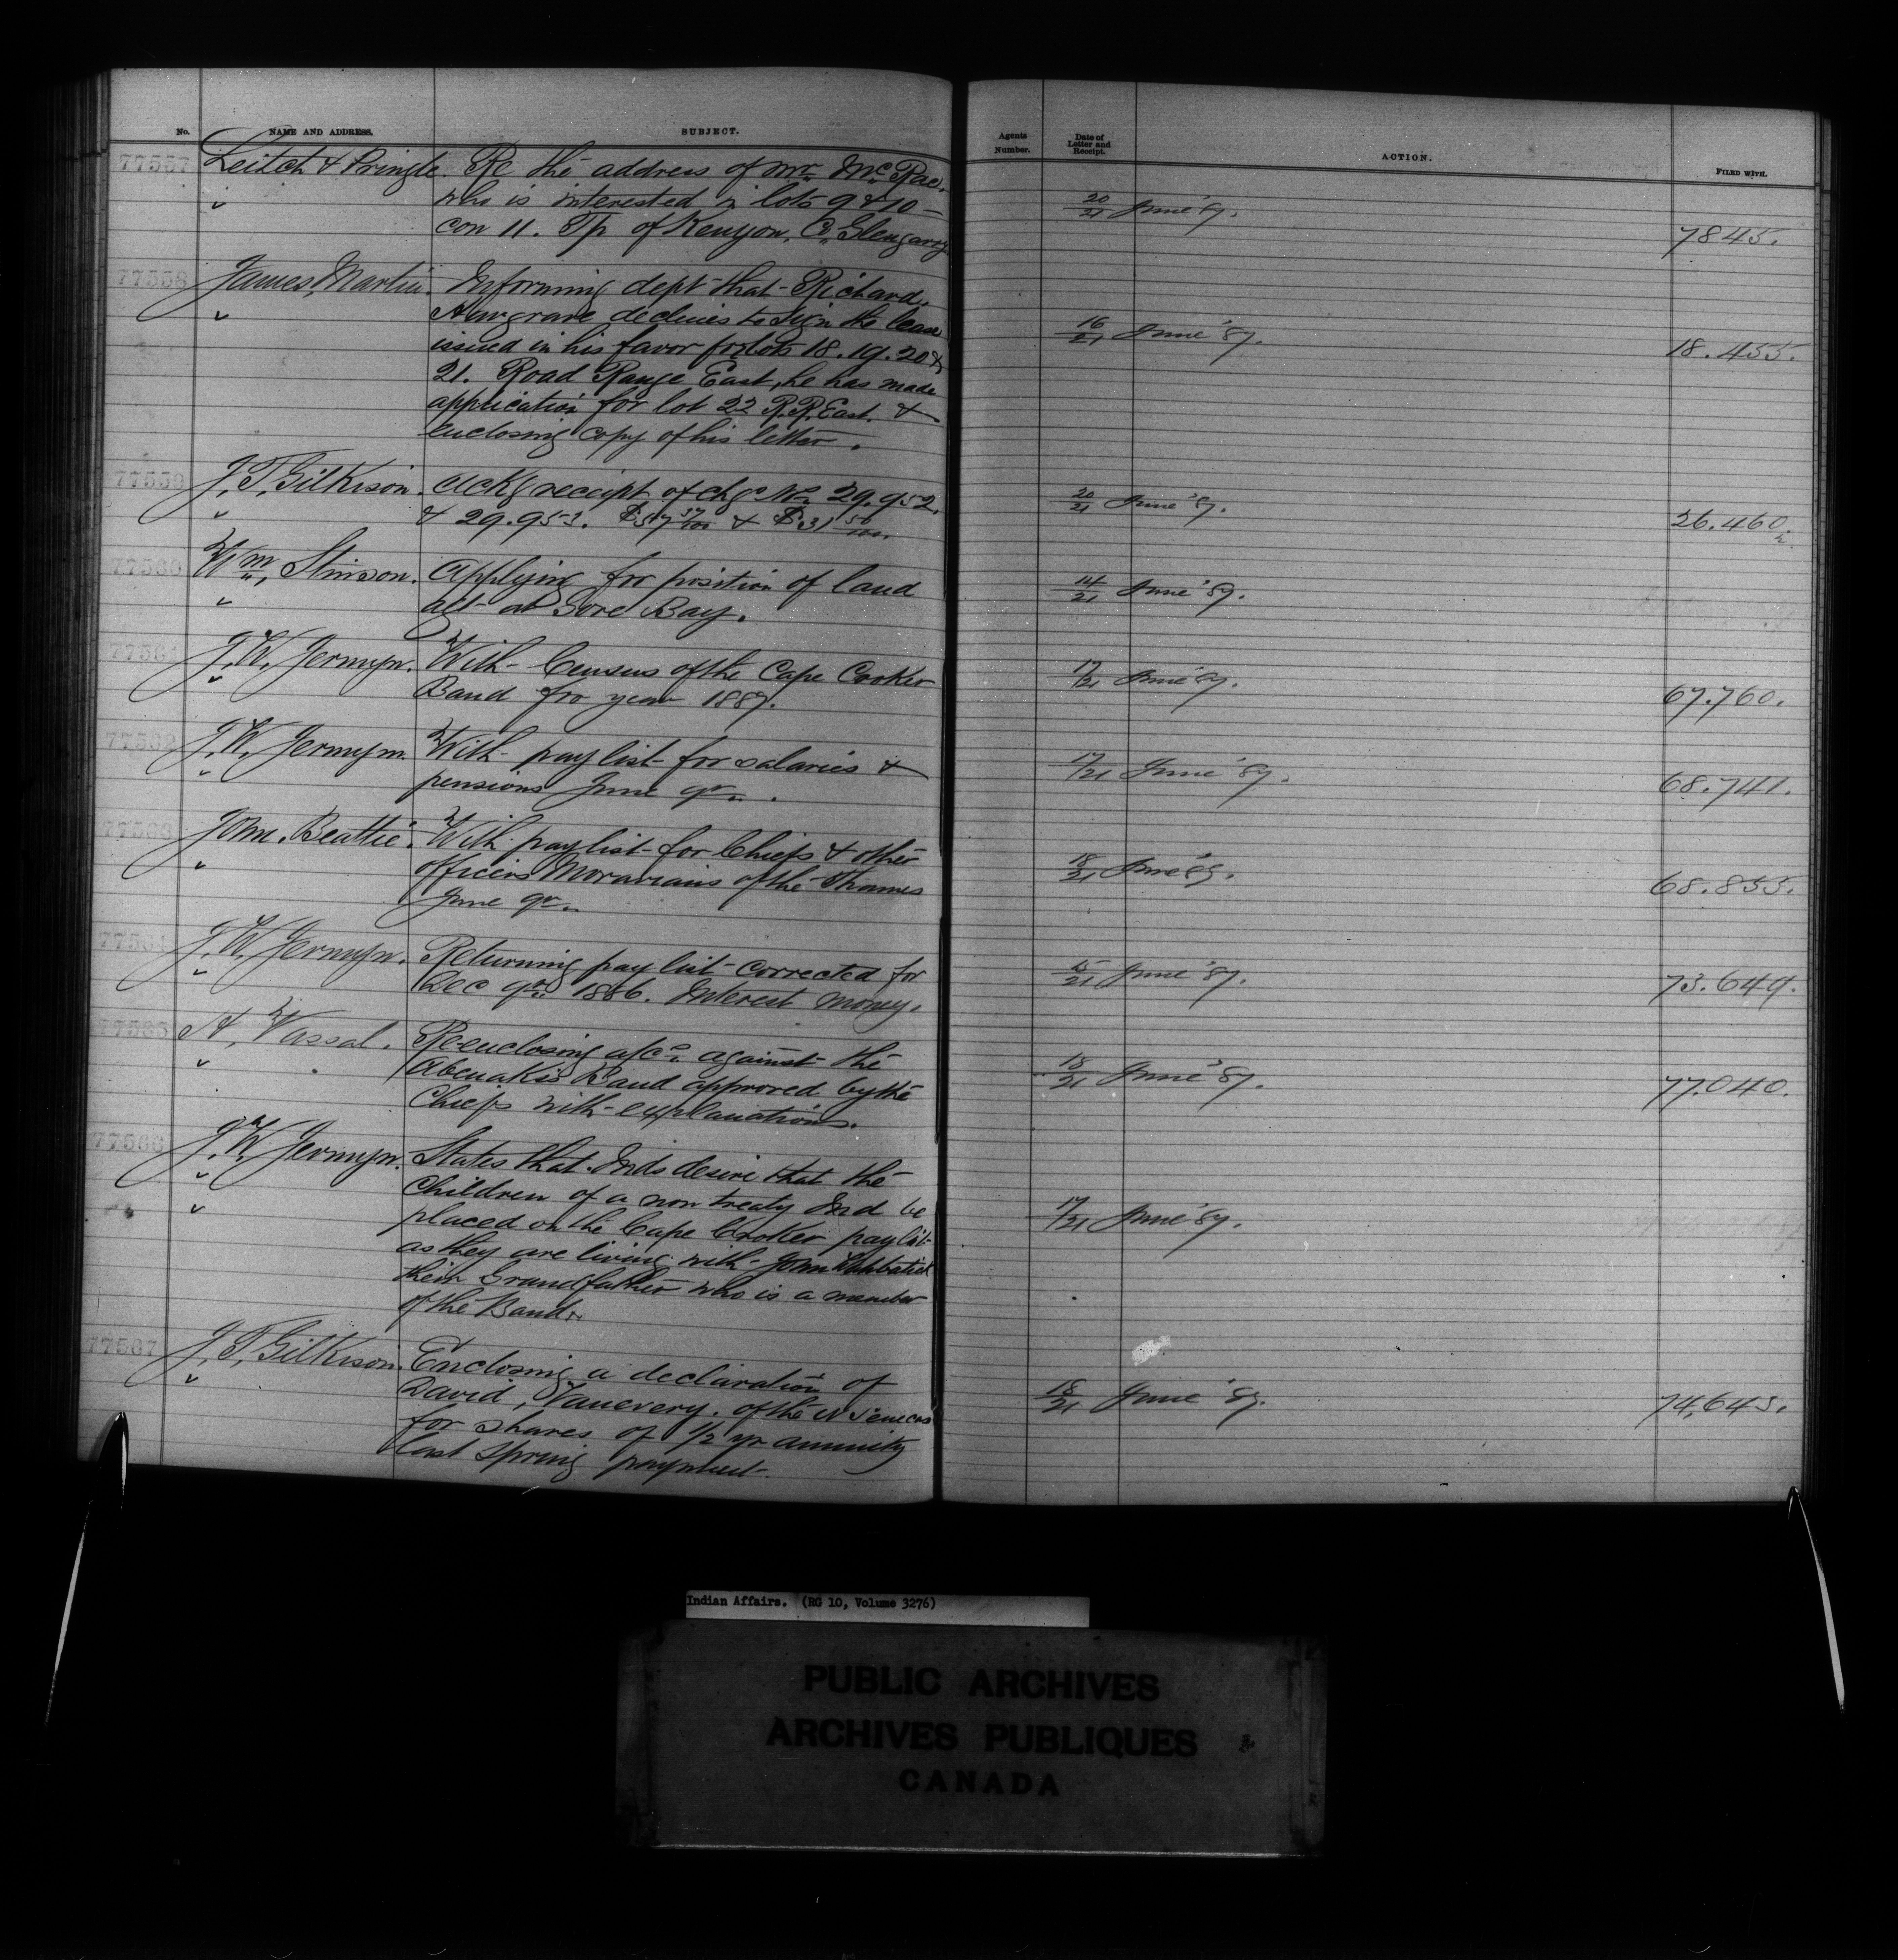 No. NAME AND ADDRESS. SUBJECT. Agents Number. Date of Letter and Receipt. ACTION. FILED WITH.
77557 Leitch & Pringle. Re the address of Mr. McRae.
who is interested in lots 9 & 10 – 20/21 June '87.
con 11. Tp of Kenyon, Co, Glengarry 7845.
77558 James Martin. Informing dept that Richard
declines to sign the lease 16/21 June '87.
issued in his favor for lots 18. 19. 20 & 18.455.
21. Road Range East, he has made
application for lot 22 R.R. East. &
enclosing copy of his letter.
77559 J. T. Gilkison. Ackg receipt of chqs Nos 29.952. 20/21 June '87.
& 29.953. $57 37/100 & $31 50/100. 26.460
77560 Wm. Stinson. Applying for position of land 14/21 June '87.
agt at Gore Bay.
77561 J. W. Jermyn. With Census of the Cape Croker 17/21 June '87.
Band for year 1887. 67.760.
77562 J. W. Jermyn. With pay list for salaries & 17/21 June '87.
pensions June qr. 68.741.
77563 John Beattie. With pay list for Chiefs & other 18/21 June '87.
officers Moravians of the Thames 68.855.
June qr.
77564 J. W. Jermyn. Returning pay list corrected for 15/21 June '87.
Dec qr. 1886. Interest money. 73.649.
77565 A. Vassal. Re-enclosing a/cs. against the 18/21 June '87.
Abenakis Band approved by the 77.040.
Chiefs with explanations.
77566 J. W. Jermyn. States that Inds desire that the
children of a non treaty Ind be 17/21 June '87.
placed on the Cape Croker pay list
as they are living with John
their Grandfather who is a member
of the Band.
77567 J. T. Gilkison. Enclosing a declaration of
David Vanevery. of the Senecas 18/21 June '87. 74,643.
for shares of 1/2 yr annuity
last Spring payment.
Indian Affairs. (RG 10, Volume 3276)
PUBLIC ARCHIVES
ARCHIVES PUBLIQUES
CANADA